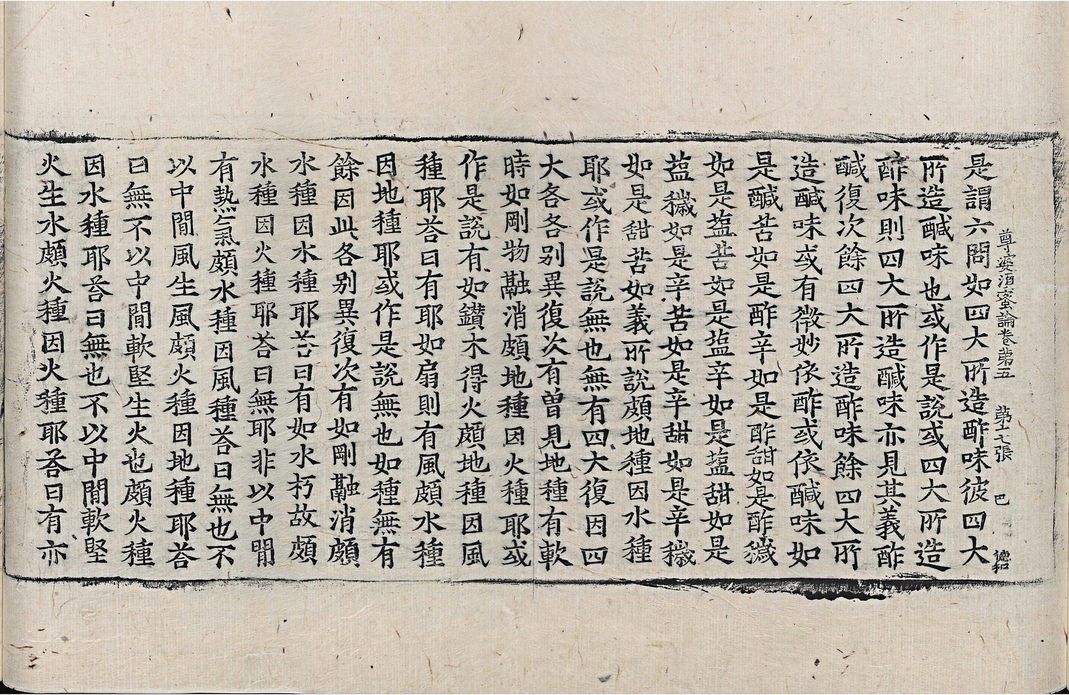 尊婆須蜜論卷苐五 苐七張 巴 德和
是謂六問如四大所造酢味彼四大
所造醎味也或作是說或四大所造
酢味則四大所造醎味亦見其義酢
醎復次餘四大所造酢味餘四大所
造醎味或有微妙依酢或依醎味如
是醎苦如是酢辛如是酢甜如是酢穢
如是塩苦如是塩辛如是塩甜如是
塩穢如是辛苦如是辛甜如是辛穢
如是甜苦如義所說頗地種因水種
耶或作是說無也無有四大復因四
大各各别異復次有曾見地種有軟
時如剛物融消頗地種因火種耶或
作是說有如鑚木得火頗地種因風
種耶荅曰有耶如扇則有風頗水種
因地種耶或作是說無也如種無有
餘因此各别異復次有如剛融消頗
水種因水種耶荅曰有如水朽故頗
水種因火種耶荅曰無耶非以中間
有熱氣頗水種因風種荅曰無也不
以中間風生風頗火種因地種耶荅
曰無不以中間軟堅生火也頗火種
因水種耶荅曰無也不以中間軟堅
火生水頗火種因火種耶荅曰有亦